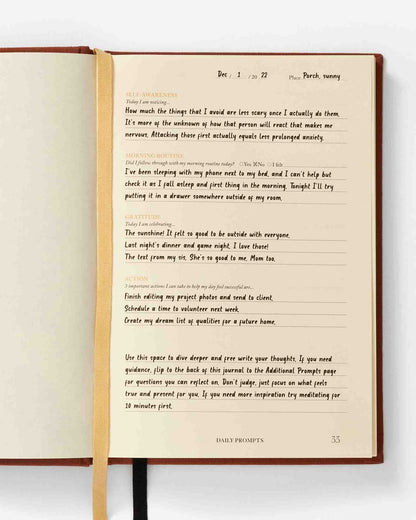 Dec / 1 / 20 22 Place Porch, sunny
SELF-AWARENESS
Today I am noticing...
How much the things that I avoid are less scary once I actually do them.
It's more of the unknown of how that person will react that makes me
nervous. Attacking those first actually equals less prolonged anxiety.
MORNING ROUTINE
Did I follow through with my morning routine today? Yes No I felt
I've been sleeping with my phone next to my bed, and I can't help but
check it as I fall asleep and first thing in the morning. Tonight I'll try
putting it in a drawer somewhere outside of my room.
GRATITUDE
Today I am celebrating...
The sunshine! It felt so good to be outside with everyone.
Last night's dinner and game night. I love those!
The text from my sis. She's so good to me. Mom too.
ACTION
3 important actions I can take to help my day feel successful are...
Finish editing my project photos and send to client.
Schedule a time to volunteer next week.
Create my dream list of qualities for a future home.
Use this space to dive deeper and free write your thoughts. If you need
guidance, flip to the back of this journal to the Additional Prompts page
for questions you can reflect on. Don't judge, just focus on what feels
true and present for you. If you need more inspiration try meditating for
10 minutes first.
DAILY PROMPTS 55